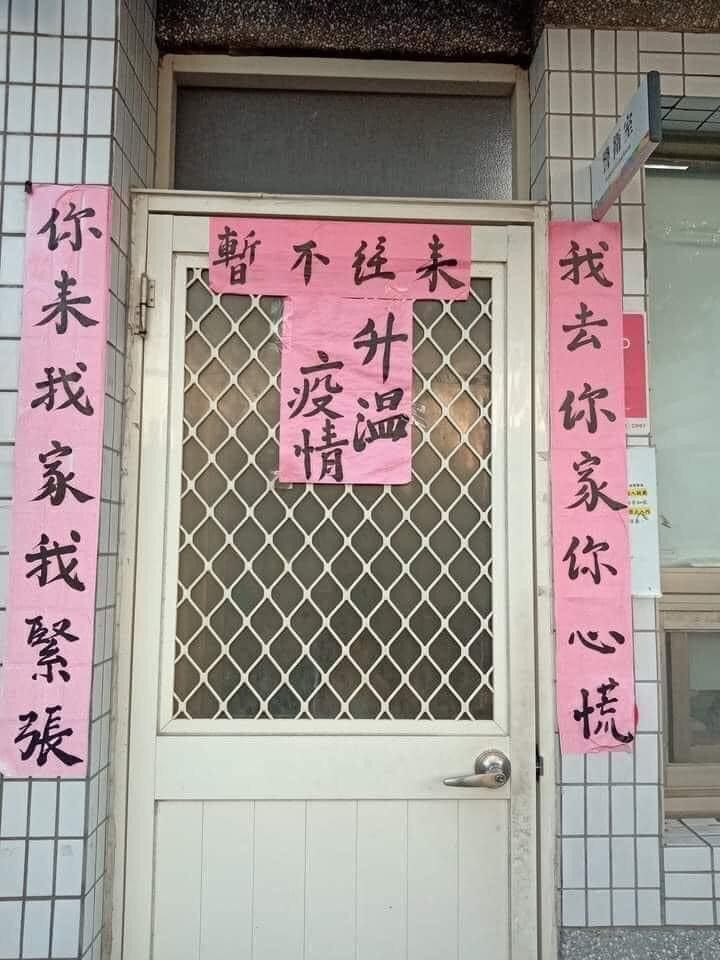 暫不往来
我去你家你心慌
你来我家我緊張
升溫
疫情